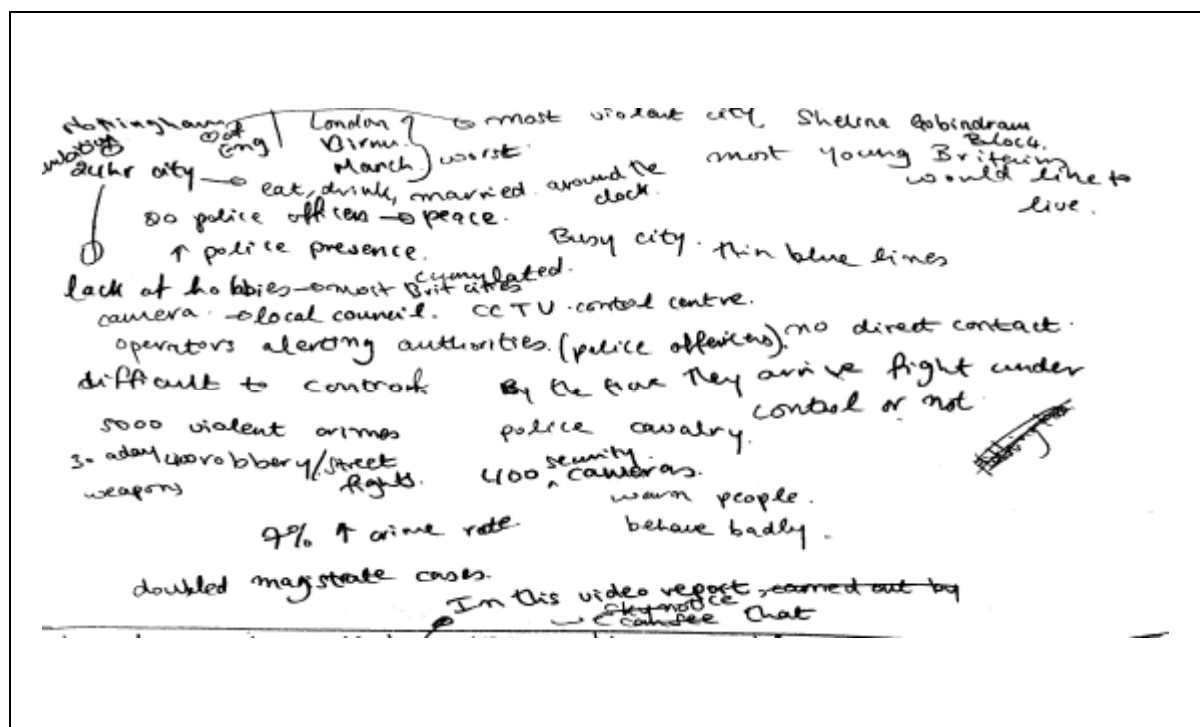 Nottingham London → most violent city Sheline Gobindram
of Eng Birmi. Block.
24hr city → Manch worst. most young Britering
eat, drink, married around the clock. would like to live.
80 police officers → peace.
↑ police presence. Busy city. thin blue lines
lack of hobbies → most Brit cities cumulated.
camera → local council. CCTV control centre.
operators alerting authorities. (police officers). no direct contact.
difficult to control By the time they arrive fight under
control or not
5000 violent crimes police cavalry.
3 a day 400 robbery / street fights. 400 security cameras.
weapons warn people.
9% ↑ crime rate. behave badly.
doubled magistrate cases.
In this video report, carried out by
can see that